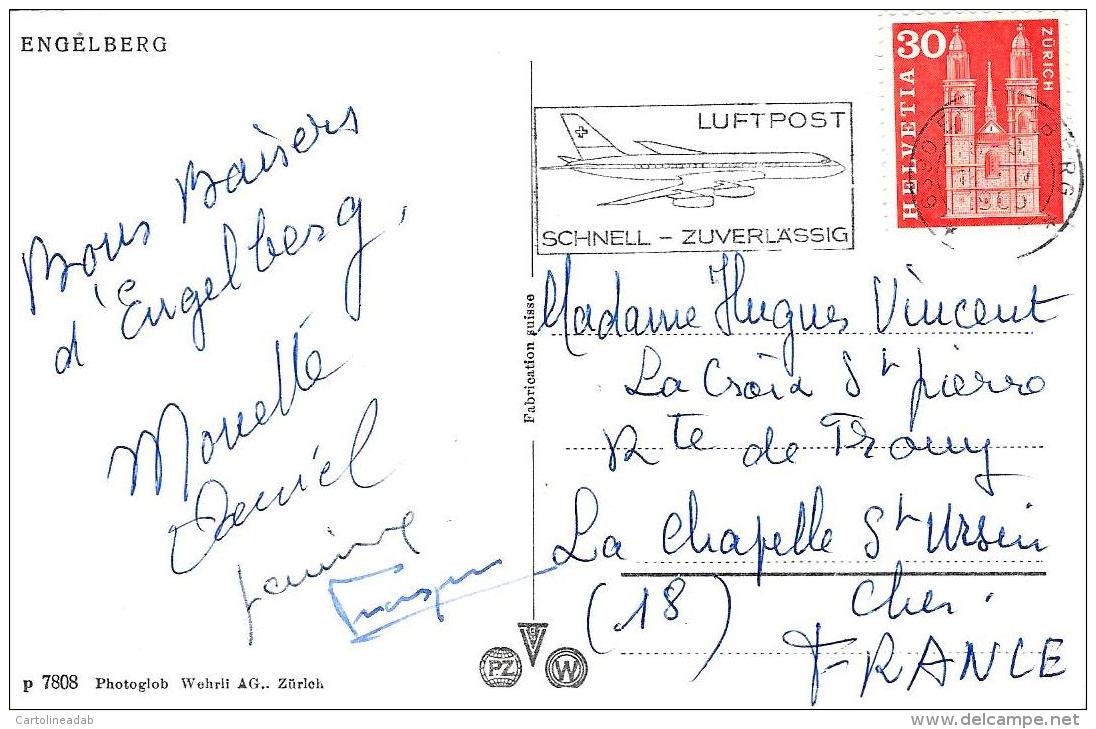 ENGELBERG
Bons Baisers
d'Engelberg,
Monette
Daniel
Janine
30
HELVETIA
ZÜRICH
LUFTPOST
SCHNELL - ZUVERLÄSSIG
6390
Fabrication suisse
Madame Hugues Vincent
La Croix St pierre
Rte de
La Chapelle St Ursin
(18) Cher.
FRANCE
PZ
W
p 7808 Photoglob Wehrli AG.. Zürich
Cartolineadab
www.delcampe.net